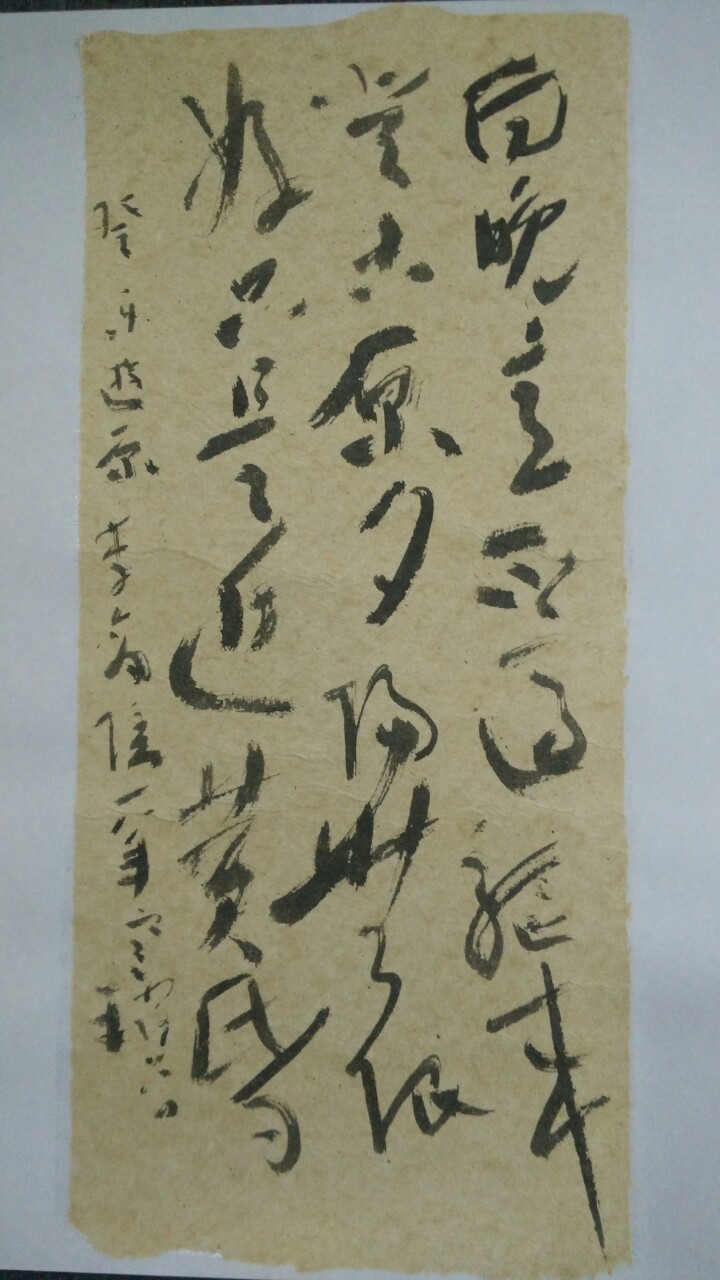 向晚意不适驱车
登古原夕陽無限
好只是近黄昏
登乐游原李商隐一八年